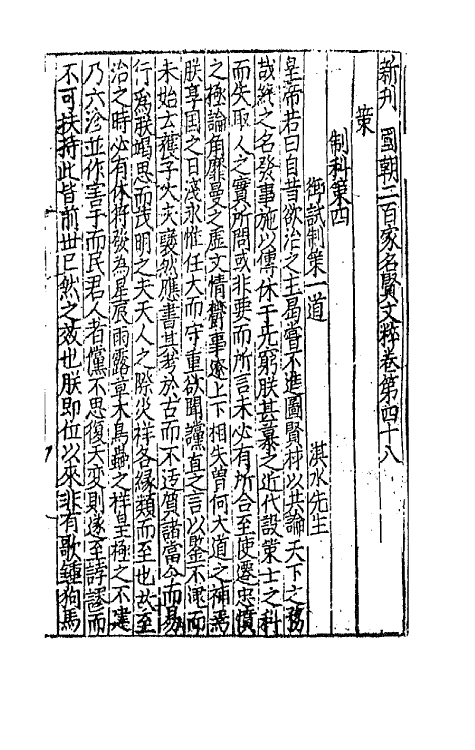 新刊 蜀朝二百家名賢文粹卷第四十八
策
制科策四
御試制策一道　淇水先生
皇帝若曰自昔欲治之主曷嘗不進圖賢材以共論天下之務
哉終之名發事施以傳休于无窮朕甚慕之近代設策士之科
而失取人之實所問或非要而所言未必有所合至使遷忠憤
之極論角靡曼之虛文情欝事邈上下相失曽何大道之補焉
朕享國之日淺永惟任大而守重欲聞讜直之言以鍳不逮而
未始去獲子大夫褎然應書其考於古而不迂質諸當今而易
行為朕竭思而茂明之夫天人之際灾祥各縁類而至也故至
治之時必有休符發為星辰雨露草木鳥蟲之祥皇極之不建
乃六沴並作害于而民君人者儻不思復天變則遂至誖謬而
不可扶持此皆前丗已然之效也朕即位以來非有歌鍾狗馬